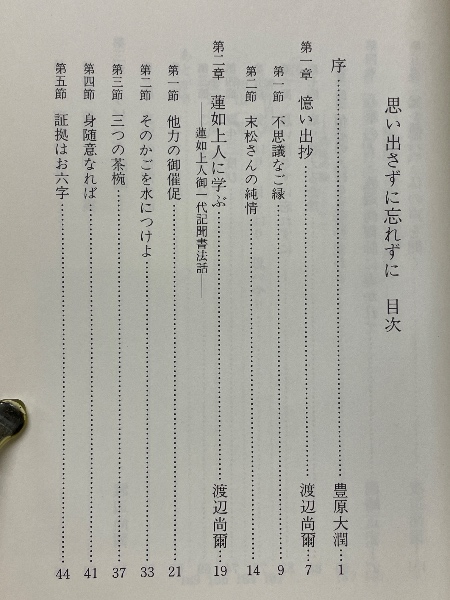 思い出さずに忘れずに 目次
序……………………豊原大潤 1
第一章 憶い出抄……………………渡辺尚爾 7
第一節 不思議なご縁…………………… 9
第二節 末松さんの純情…………………… 14
第二章 蓮如上人に学ぶ……………………渡辺尚爾 19
――蓮如上人御一代記聞書法話――
第一節 他力の御催促…………………… 21
第二節 そのかごを水につけよ…………………… 33
第三節 三つの茶椀…………………… 37
第四節 身随意なれば…………………… 41
第五節 証拠はお六字…………………… 44